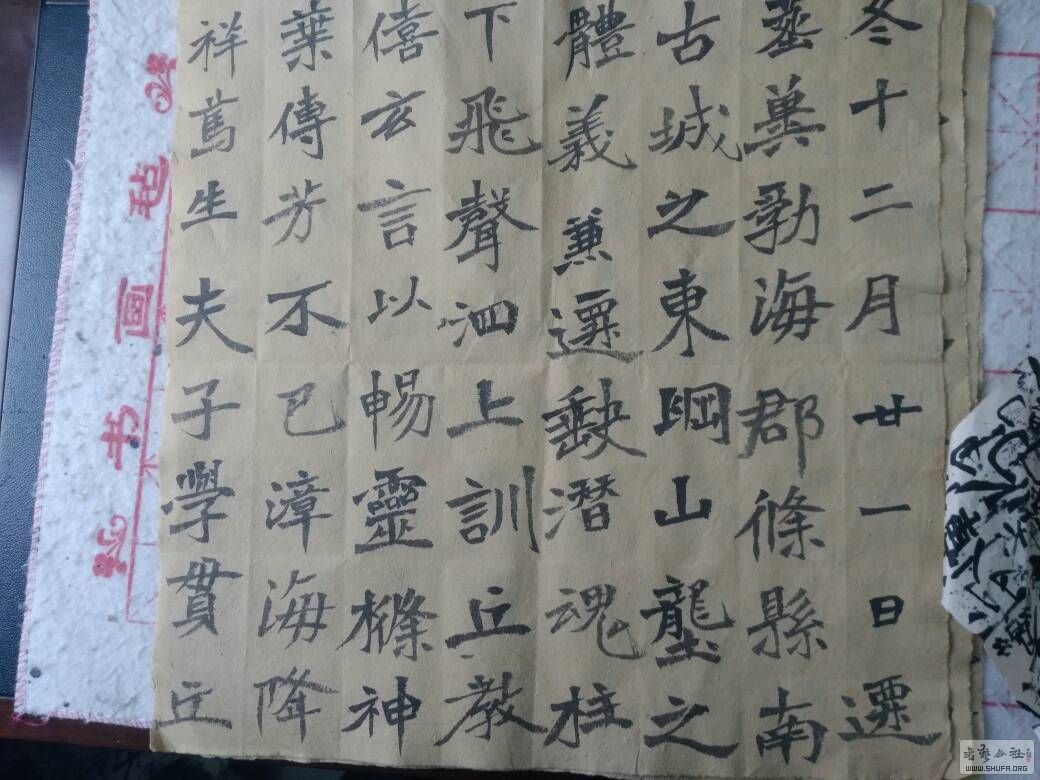 冬十二月廿一日遷
塟兾勃海郡條縣南
古城之東堈山壟之
體義兼遷缺潜魂柱
下飛聲泗上訓丘教
僖玄言以暢靈樤神
葉傳芳不已漳海降
祥篤生夫子學貫丘
书画毡
书艺公社
WWW.SHUFA.ORG